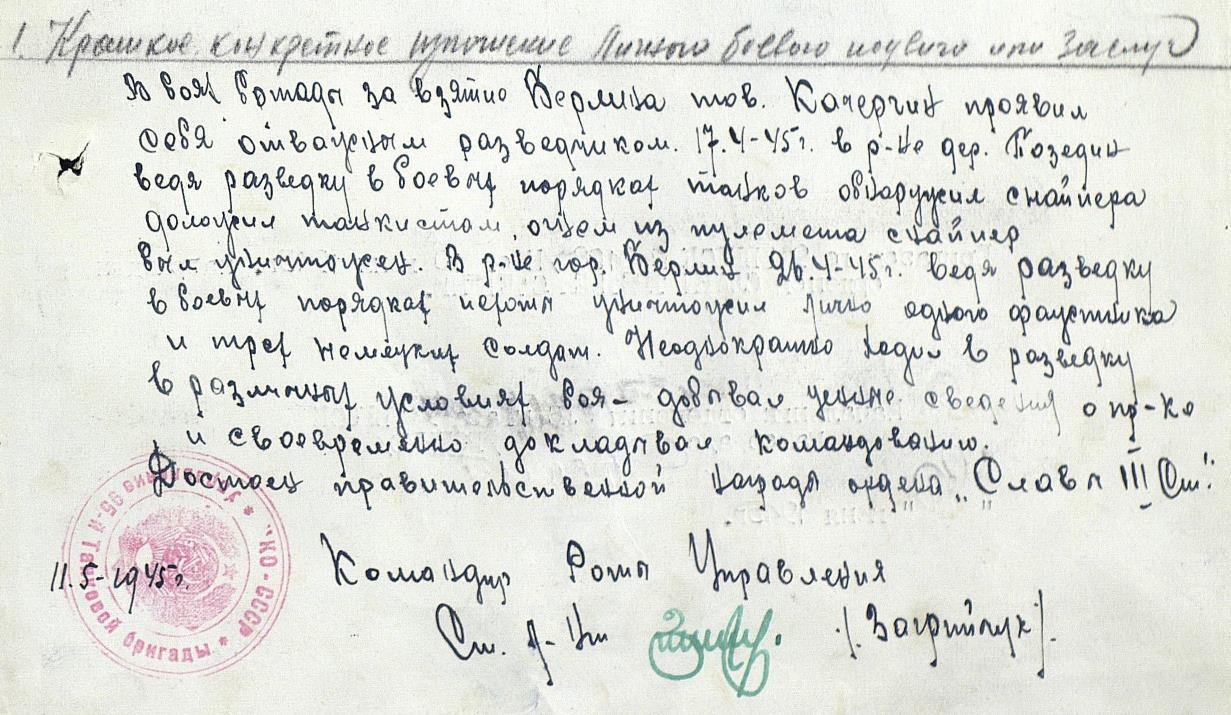 1. Краткое конкретное изложение личного боевого подвига или заслуг
В боях бригады за взятие Берлина тов. Качергин проявил
себя отважным разведчиком. 17.4-45г. в р-не дер.
ведя разведку в боевых порядках танков обнаружил снайпера
доложил танкистам, огнем из пулемета снайпер
был уничтожен. В р-не гор. Берлин 26.4-45г. ведя разведку
в боевых порядках пехоты уничтожил лично одного фаустника
и трех немецких солдат. Неоднократно ходил в разведку
в различных условиях боя - добывал ценные сведения о пр-ке
и своевременно докладывал командованию.
Достоин правительственной награды ордена „Славы III Ст."
11.5-1945г.
Командир Роты Управления
Ст. л-нт
Управление 95-й Танковой бригады * НКО-СССР *